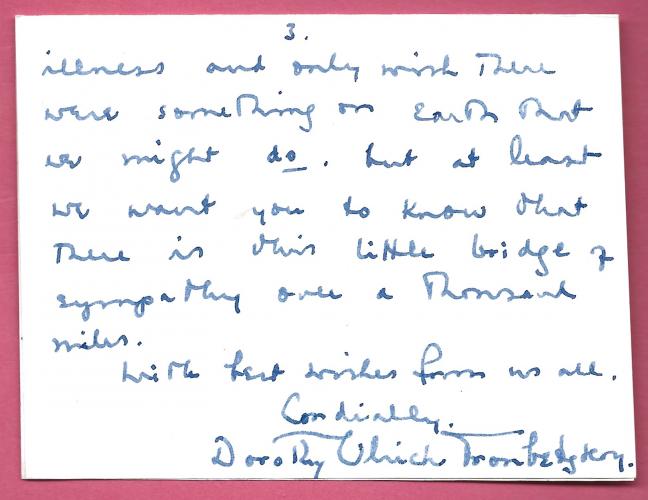 3.
illness and only wish there
were something on Earth that
we might do. but at least
we want you to know that
there is this little bridge of
sympathy over a thousand
miles.
With best wishes from us all.
Cordially.
Dorothy Ulrich Troubetzkoy.